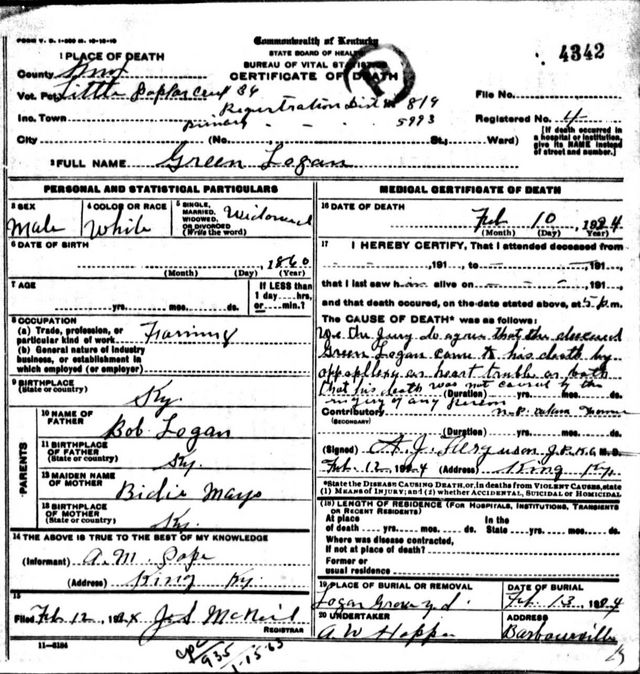 Commonwealth of Kentucky
STATE BOARD OF HEALTH
BUREAU OF VITAL STATISTICS
CERTIFICATE OF DEATH
4342
1 PLACE OF DEATH
County Knox
Vot. Pct. Little Poplar Creek 34
File No.
Registration Dist No 819
Inc. Town
Primary - - 5993
Registered No. 4
City (No. St.; Ward)
[If death occurred in a hospital or institution, give its NAME instead of street and number.]
2 FULL NAME Green Logan
PERSONAL AND STATISTICAL PARTICULARS
3 SEX Male
4 COLOR OR RACE White
5 SINGLE, MARRIED, WIDOWED, OR DIVORCED (Write the word) Widowed
6 DATE OF BIRTH
1860
(Month) (Day) (Year)
7 AGE
yrs. mos. ds.
If LESS than 1 day hrs, or min.?
8 OCCUPATION
(a) Trade, profession, or particular kind of work Farming
(b) General nature of industry business, or establishment in which employed (or employer)
9 BIRTHPLACE
(State or country) Ky.
PARENTS
10 NAME OF FATHER Bob Logan
11 BIRTHPLACE OF FATHER (State or country) Ky.
12 MAIDEN NAME OF MOTHER Bidie Mays
13 BIRTHPLACE OF MOTHER (State or country) Ky.
14 THE ABOVE IS TRUE TO THE BEST OF MY KNOWLEDGE
(Informant) A. M. Pope
(Address) King Ky.
15
Filed Feb 12, 1924 Jas McNeil
REGISTRAR
11-6184
MEDICAL CERTIFICATE OF DEATH
16 DATE OF DEATH
Feb 10, 1924
(Month) (Day) (Year)
17 I HEREBY CERTIFY, That I attended deceased from
,191 , to ,191 ,
that I last saw him alive on ,191 ,
and that death occured, on the date stated above, at 5 p.m.
The CAUSE OF DEATH* was as follows:
We the Jury do agree that the deceased
Green Logan came to his death by
appoplexy or heart truble or both
that his death was not caused by the
(Duration) yrs. mos. ds.
injury of any person
Contributory
(SECONDARY)
(Duration) yrs. mos. ds.
(Signed) A. J. Ferguson J.P.K.C. M. D.
Feb. 12, 1924 (Address) King Ky.
*State the DISEASE CAUSING DEATH, or, in deaths from VIOLENT CAUSES, state
(1) MEANS OF INJURY; and (2) whether ACCIDENTAL, SUICIDAL or HOMICIDAL
(18) LENGTH OF RESIDENCE (FOR HOSPITALS, INSTITUTIONS, TRANSIENTS OR RECENT RESIDENTS)
At place of death yrs. mos. ds. In the State yrs. mos. ds.
Where was disease contracted,
If not at place of death?
Former or
usual residence
19 PLACE OF BURIAL OR REMOVAL
Logan Grave yd.
DATE OF BURIAL
Feb. 13, 1924
20 UNDERTAKER
A W Hopper
ADDRESS
Barbourville
935
1-15-63